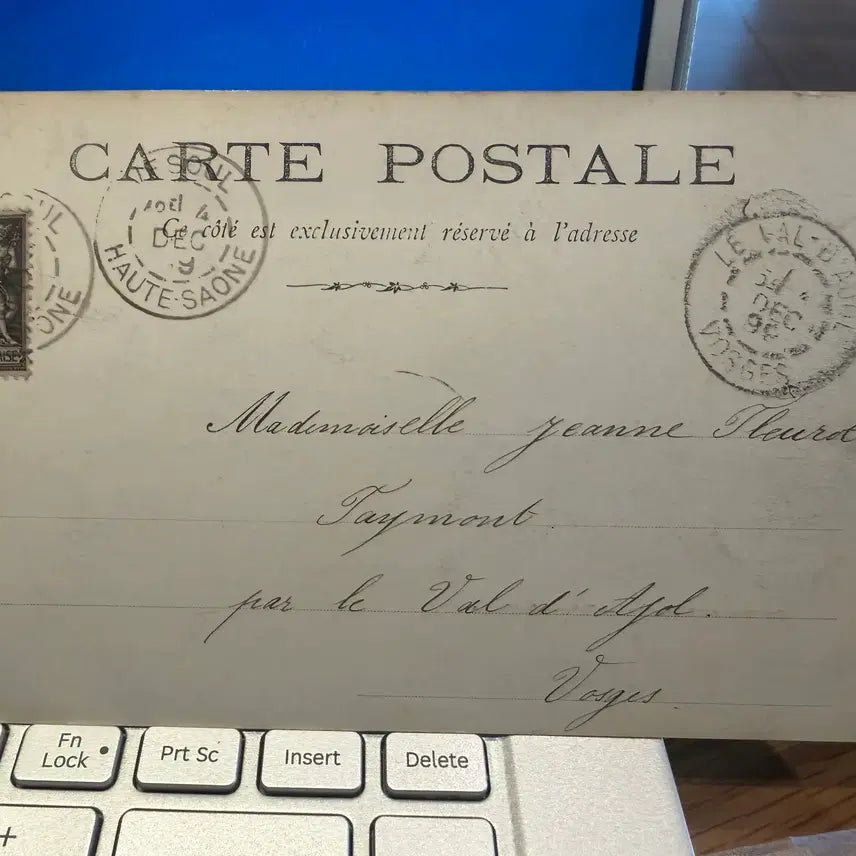 CARTE POSTALE
Ce côté est exclusivement réservé à l'adresse
VESOUL
4
DEC
HAUTE-SAONE
LE VAL-D'AJOL
DEC
VOSGES
Mademoiselle Jeanne Fleurot
Faymont
par le Val d'Ajol.
Vosges.
Fn
Lock
Prt Sc
Insert
Delete
+